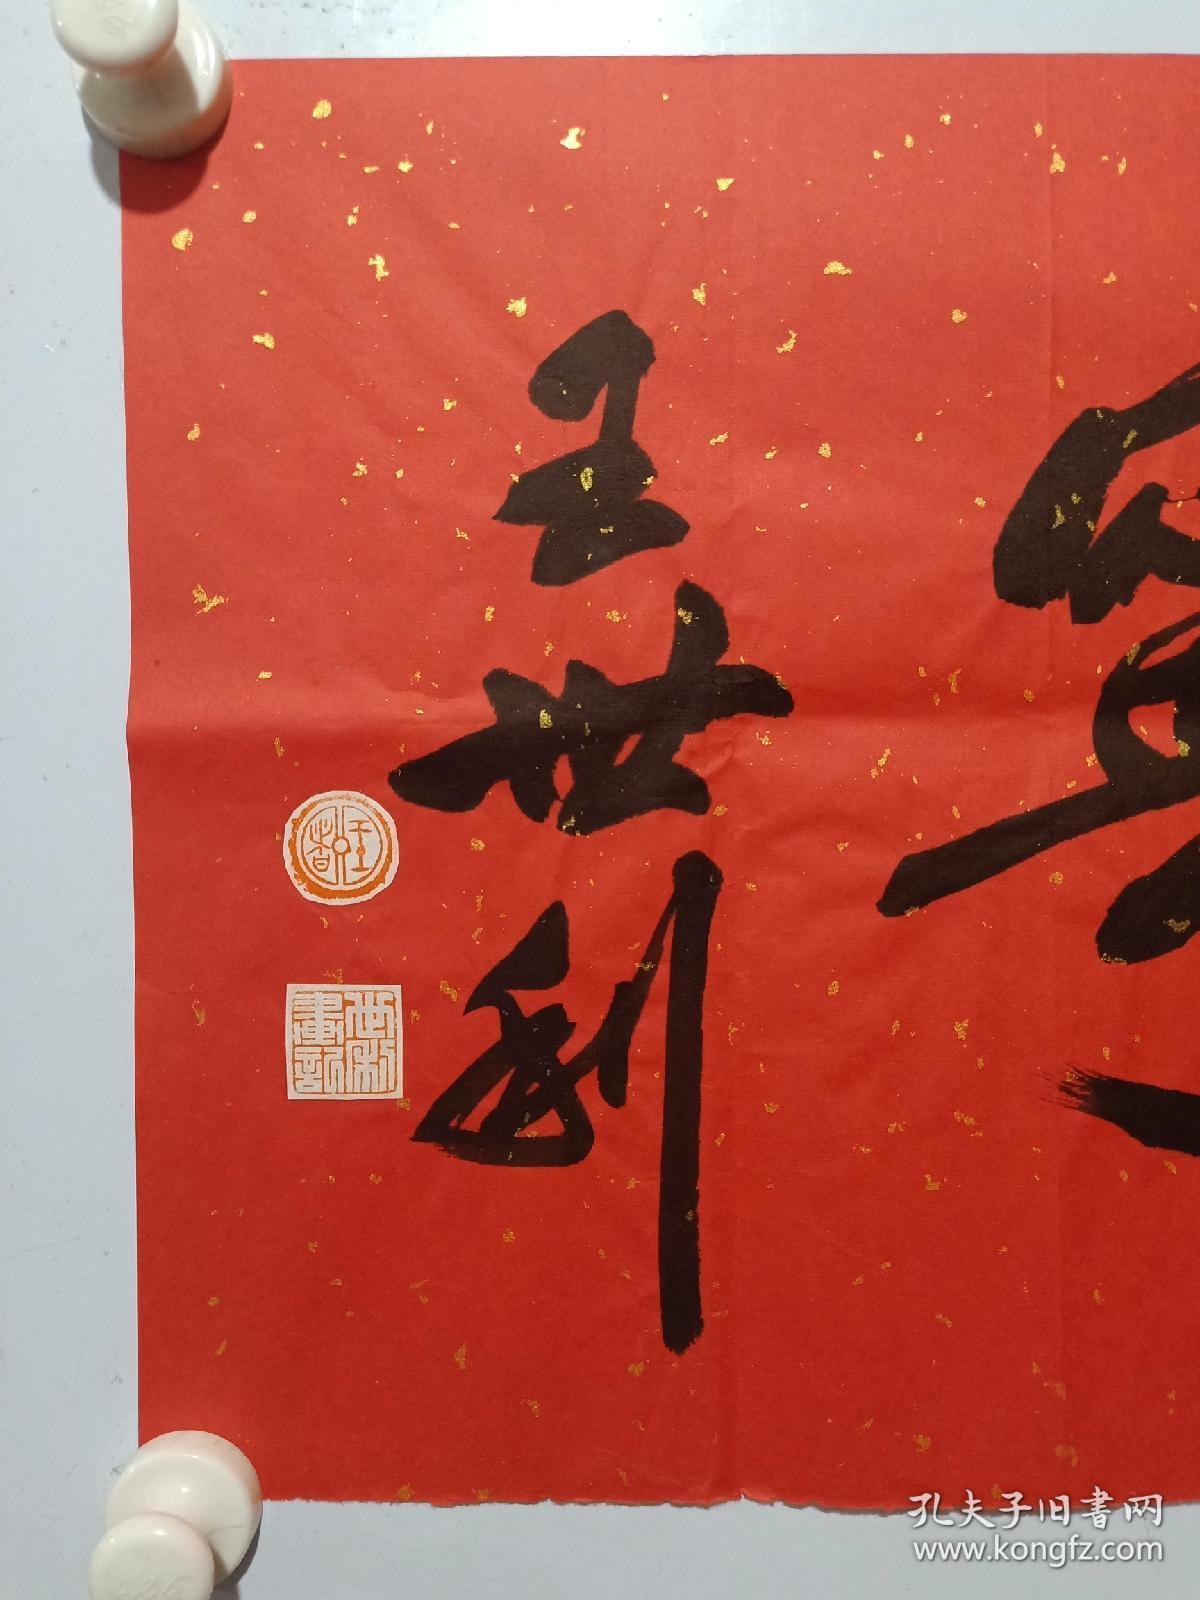 王世利
世利
書記
孔夫子旧书网
www.kongfz.com